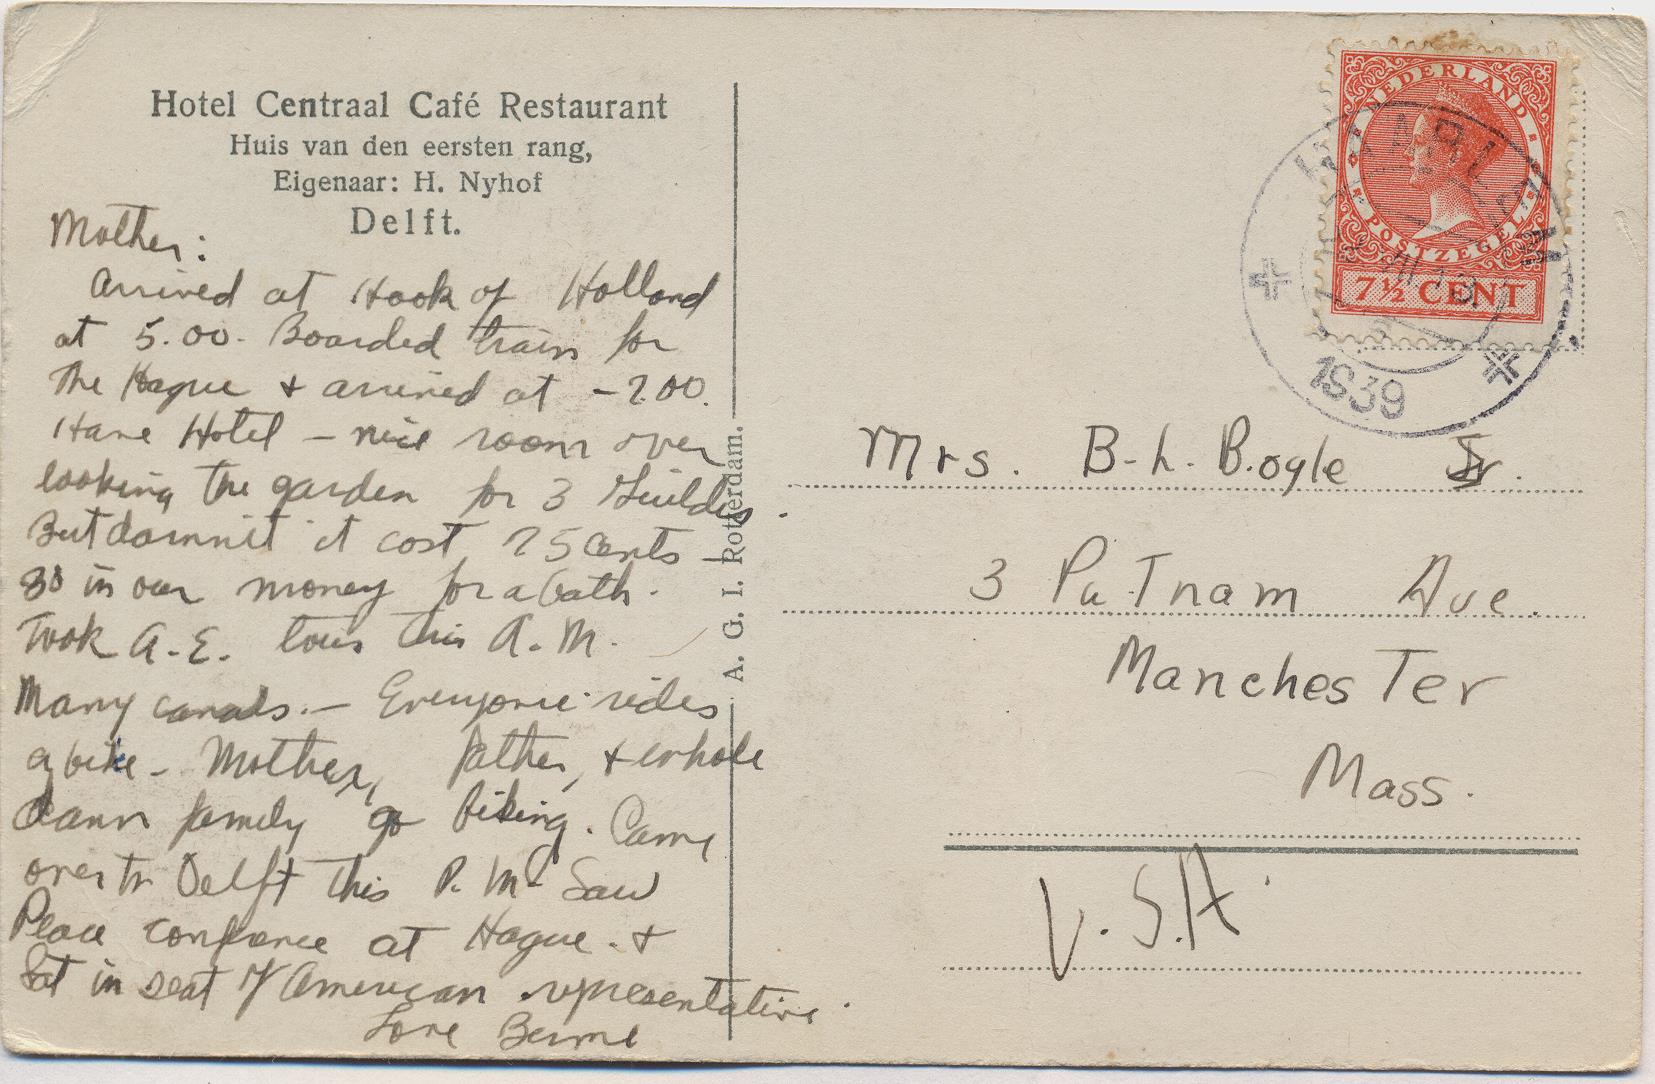 Hotel Centraal Café Restaurant
Huis van den eersten rang,
Eigenaar: H. Nyhof
Delft.
Mother:
Arrived at Hook of Holland
at 5.00. Boarded train for
the Hague + arrived at - 7.00.
Have Hotel - nice room over
looking the garden for 3 Guilders.
But damnit it cost 75 cents -
in our money for a bath.
Took A.E. tour this A.M.
Many canals. - Everyone rides
a bike - Mother, father, + whole
damn family go biking. Came
over to Delft this P.M. Saw
Peace conference at Hague. +
Sat in seat of American representative.
Love
A. G. I. Rotterdam.
NEDERLAND
POSTZEGEL
7½ CENT
1939
Mrs. B. L. Bogle Jr.
3 Putnam Ave.
Manchester
Mass.
U.S.A.